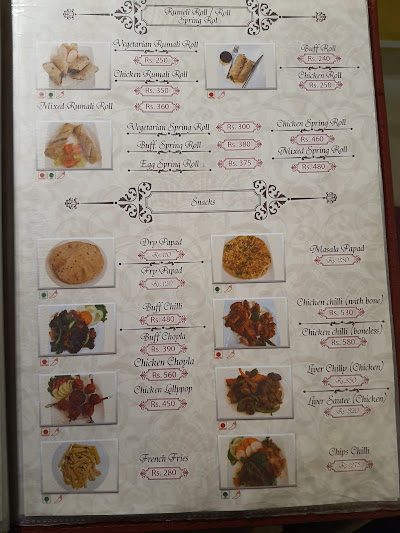 Rumali Roll / Roll
Spring Rol
Vegetarian Rumali Roll
Rs: 250
Chicken Rumali Roll
Rs: 350
Mixed Rumali Roll
Rs: 360
Buff Roll
Rs: 240
Chicken Roll
Rs: 250
Vegetarian Spring Roll
Rs. 300
Buff Spring Roll
Rs. 380
Egg Spring Roll
Rs. 375
Chicken Spring Roll
Rs. 460
Mixed Spring Roll
Rs. 480
Snacks
Dry Papad
Fry Papad
Masala Papad
Buff Chilli
Rs. 480
Buff Chopla
Rs. 390
Chicken chilli (with bone)
Rs. 530
Chicken chilli (boneless)
Rs. 580
Chicken Chopla
Rs. 560
Chicken Lollypop
Rs. 450
Liver Chilly (Chicken)
Liver Sautee (Chicken)
French Fries
Rs. 280
Chips Chilli